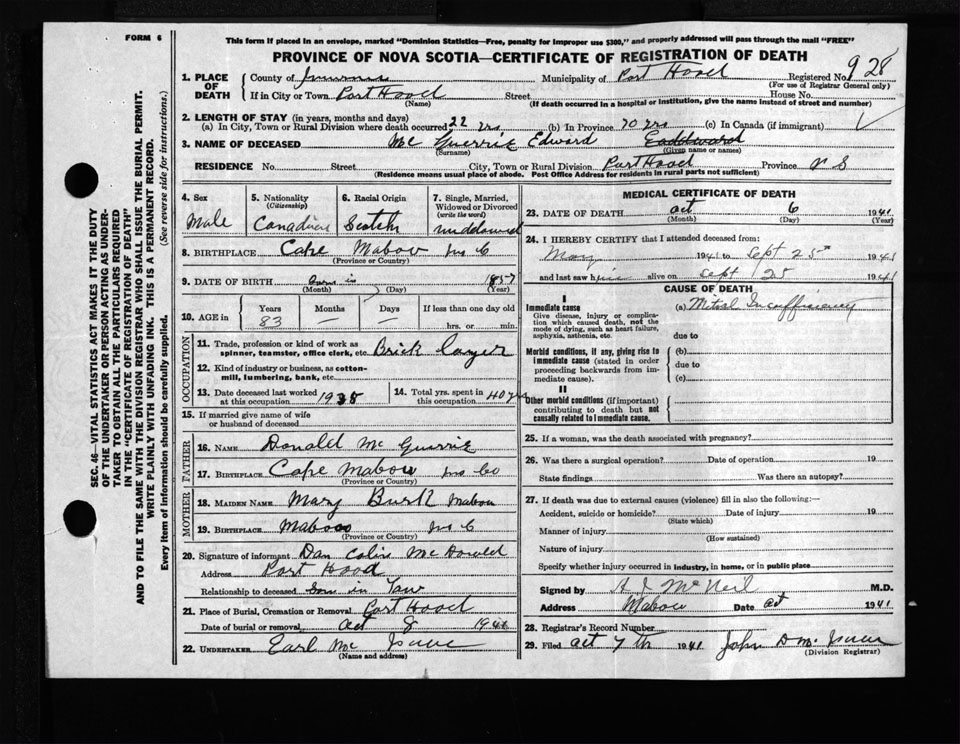 FORM 6
This form if placed in an envelope, marked "Dominion Statistics—Free, penalty for improper use $300," and properly addressed will pass through the mail "FREE"
PROVINCE OF NOVA SCOTIA—CERTIFICATE OF REGISTRATION OF DEATH
SEC. 46—VITAL STATISTICS ACT MAKES IT THE DUTY
OF THE UNDERTAKER OR PERSON ACTING AS UNDER-
TAKER TO OBTAIN ALL THE PARTICULARS REQUIRED
IN THE "CERTIFICATE OF REGISTRATION OF DEATH"
AND TO FILE THE SAME WITH THE DIVISION REGISTRAR WHO SHALL ISSUE THE BURIAL PERMIT.
WRITE PLAINLY WITH UNFADING INK. THIS IS A PERMANENT RECORD.
Every item of information should be carefully supplied. (See reverse side for instructions.)
1. PLACE OF DEATH County of Municipality of Port Hood Registered No. 928
(For use of Registrar General only)
If in City or Town Port Hood Street House No.
(Name) (If death occurred in a hospital or institution, give the name instead of street and number)
2. LENGTH OF STAY (in years, months and days)
(a) In City, Town or Rural Division where death occurred 22 yrs (b) In Province 70 yrs (c) In Canada (if immigrant)
3. NAME OF DECEASED Mc Guerrie Edward
(Surname) (Given name or names)
RESIDENCE No. Street City, Town or Rural Division Port Hood Province N S
(Residence means usual place of abode. Post Office Address for residents in rural parts not sufficient)
4. Sex Male
5. Nationality (Citizenship) Canadian
6. Racial Origin Scotch
7. Single, Married, Widowed or Divorced (write the word) widdowed
8. BIRTHPLACE Cape Mabou Inv C
(Province or Country)
9. DATE OF BIRTH born in 1857
(Month) (Day) (Year)
10. AGE in Years 83 Months — Days — If less than one day old hrs. or min.
OCCUPATION
11. Trade, profession or kind of work as spinner, teamster, office clerk, etc. Brick layer
12. Kind of industry or business, as cotton-mill, lumbering, bank, etc.
13. Date deceased last worked at this occupation 1935
14. Total yrs. spent in this occupation 40 yrs
15. If married give name of wife or husband of deceased
FATHER
16. NAME Donald Mc Guerrie
17. BIRTHPLACE Cape Mabou Inv Co
(Province or Country)
MOTHER
18. MAIDEN NAME Mary Burk Mabou
19. BIRTHPLACE Mabou Inv C
(Province or Country)
20. Signature of informant Dan Colin McDonald
Address Port Hood
Relationship to deceased Son in Law
21. Place of Burial, Cremation or Removal Port Hood
Date of burial or removal Oct 8 1941
22. UNDERTAKER Earl Mc Isaac
(Name and address)
MEDICAL CERTIFICATE OF DEATH
23. DATE OF DEATH Oct 6 1941
(Month) (Day) (Year)
24. I HEREBY CERTIFY that I attended deceased from:
May 1941 to Sept 25th 1941
and last saw him alive on Sept 25 1941
CAUSE OF DEATH
I
Immediate cause (a) Mitral Insufficiency
Give disease, injury or complication which caused death, not the mode of dying, such as heart failure, asphyxia, asthenia, etc. due to
Morbid conditions, if any, giving rise to immediate cause (stated in order proceeding backwards from immediate cause). (b)
due to
(c)
II
Other morbid conditions (if important) contributing to death but not causally related to immediate cause.
25. If a woman, was the death associated with pregnancy?
26. Was there a surgical operation? Date of operation 19
State findings Was there an autopsy?
27. If death was due to external causes (violence) fill in also the following:—
Accident, suicide or homicide? Date of injury 19
(State which)
Manner of injury
(How sustained)
Nature of injury
Specify whether injury occurred in industry, in home, or in public place
Signed by A J McNeil M.D.
Address Mabou Date Oct 1941
28. Registrar's Record Number
29. Filed Oct 7th 1941 John D Mc Isaac
(Division Registrar)